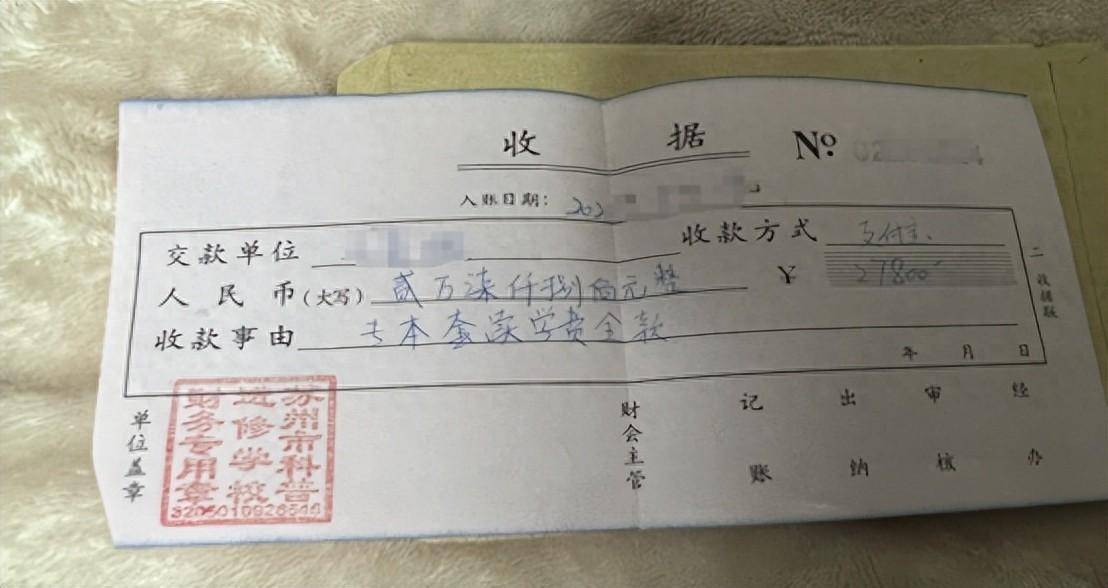 收 据 No
入账日期： 202
交款单位 收款方式 支付宝
人民币（大写） 贰万柒仟捌佰元整 ¥ 27800
收款事由 专本套读学费全款
年 月 日
二 收据联
单位盖章
苏州市科普
进修学校
财务专用章
财会主管
记账
出纳
审核
经办